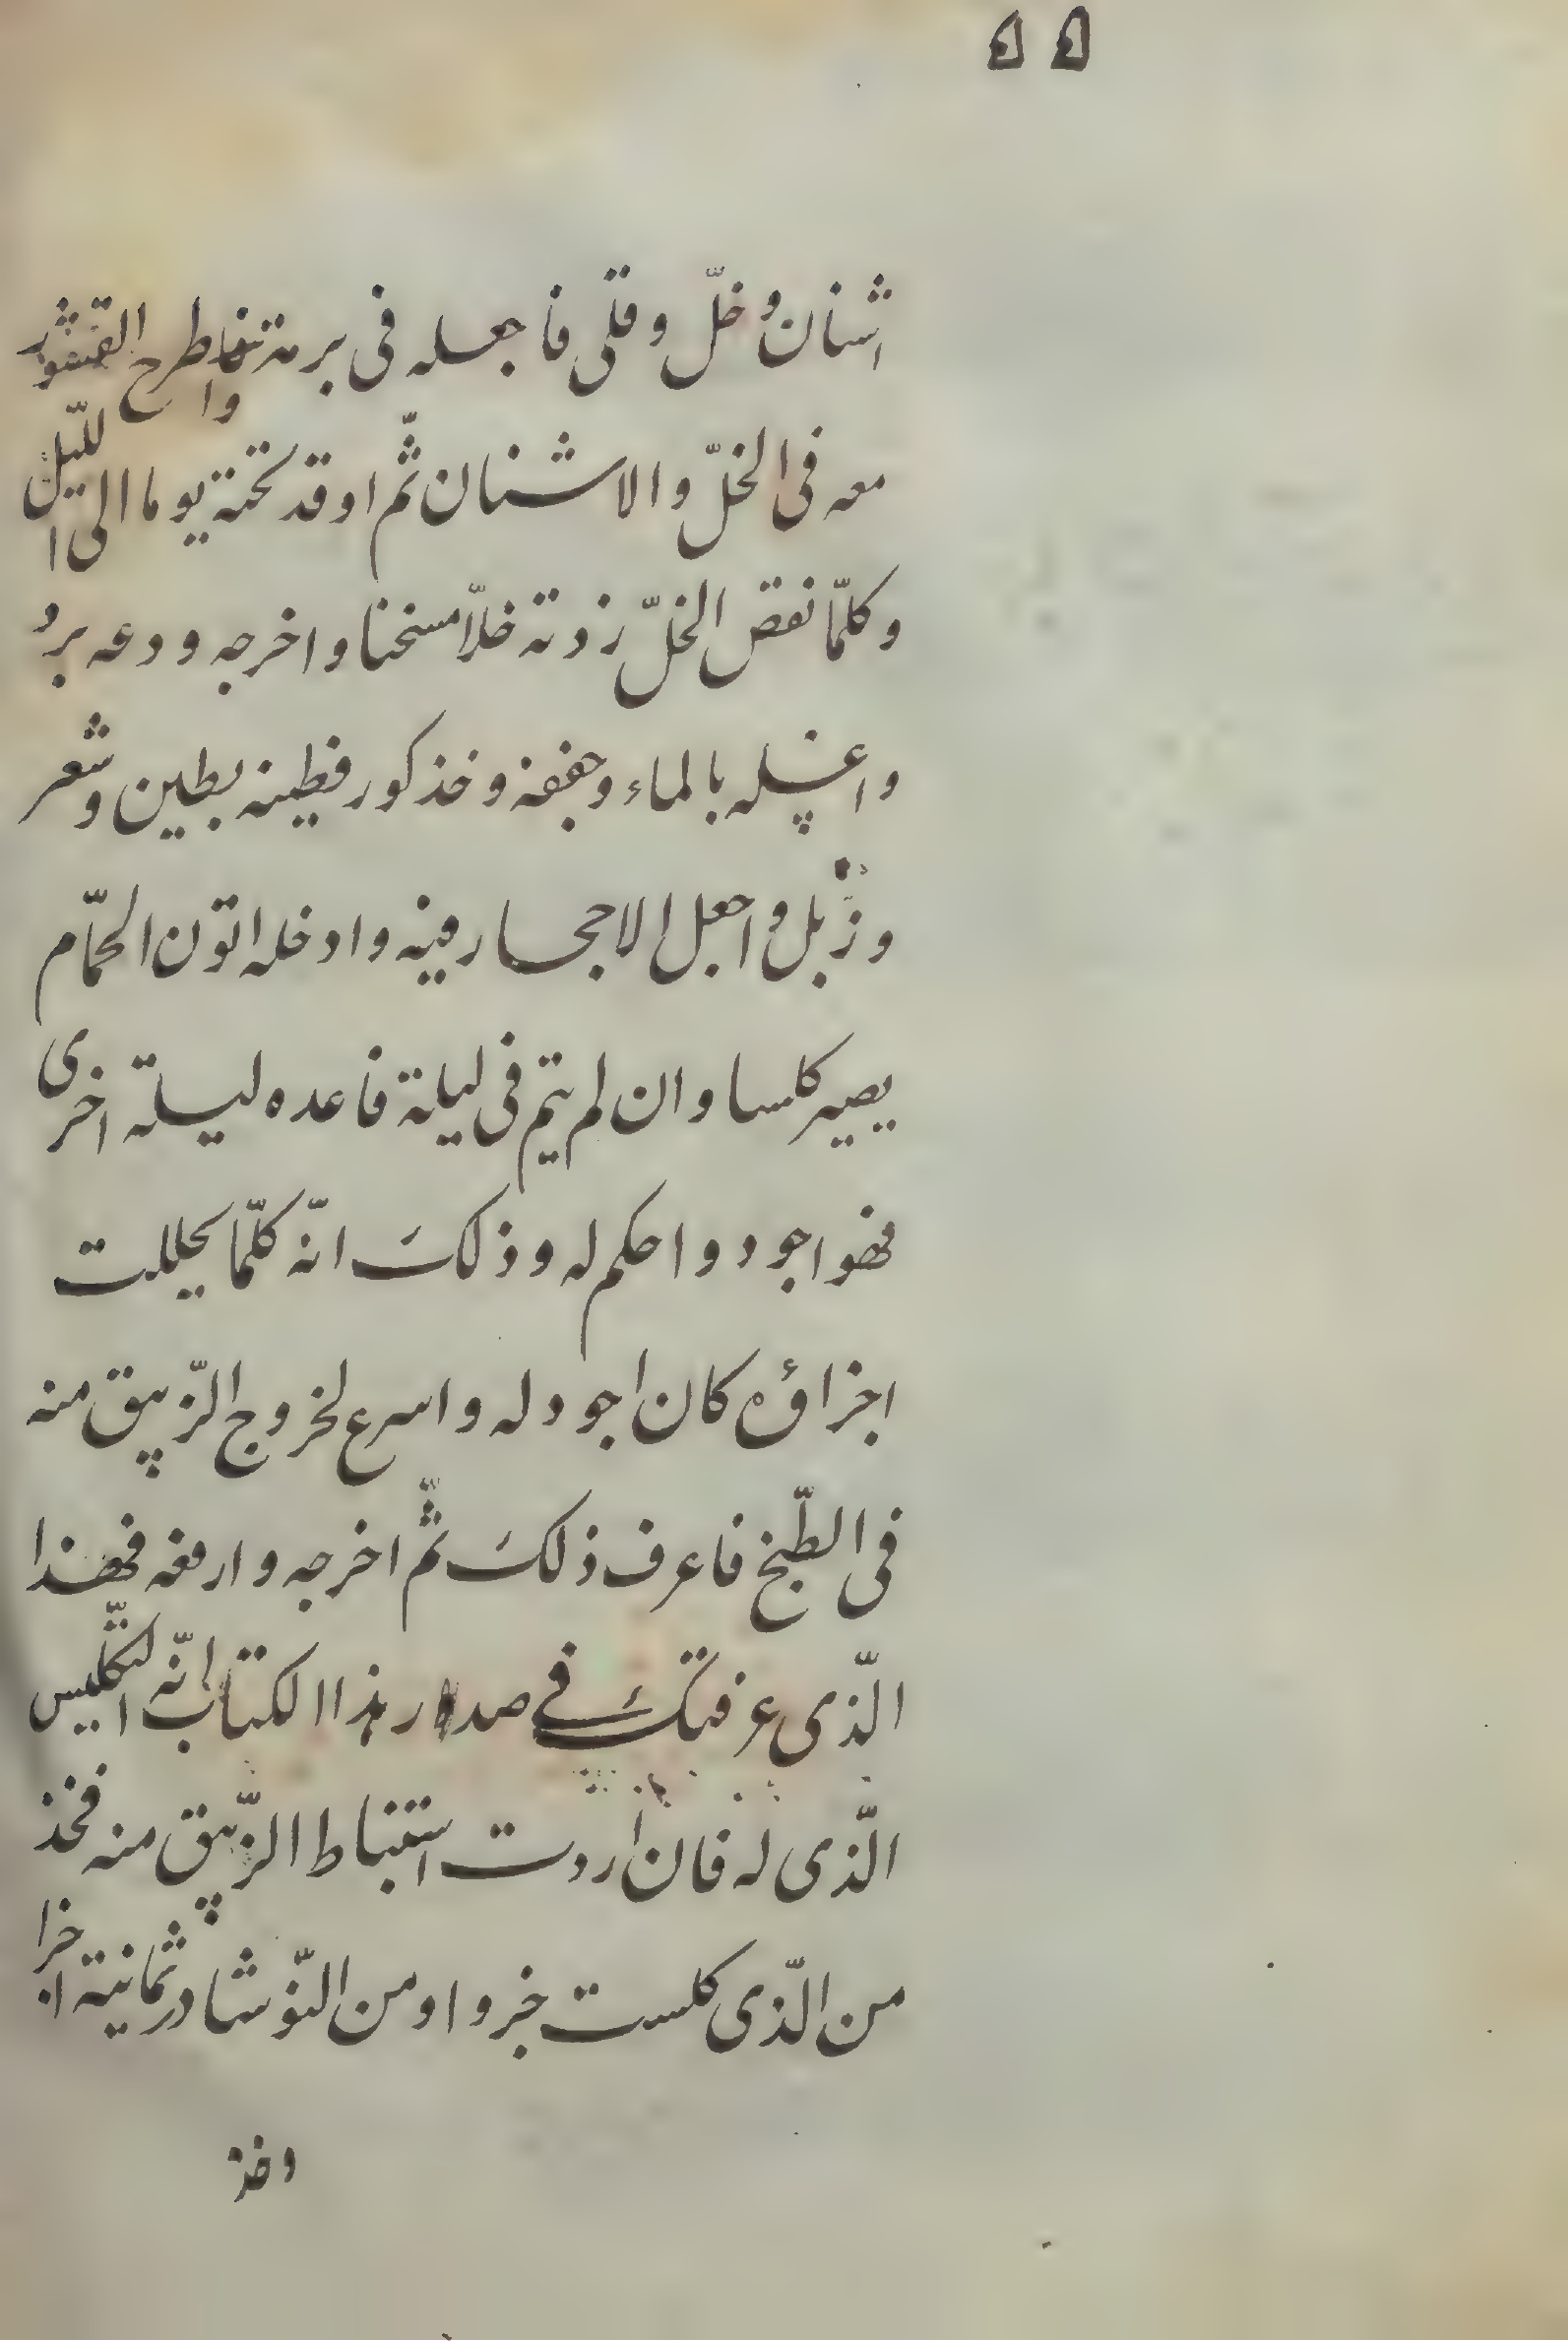 ۵۵
اشنان وخلّ وقلى فاجعله فى برمة واطرح القشور
معه فى الخلّ والاشنان ثمّ اوقد تحته يوما الى اللّيل
وكلمّا نقص الخلّ زدته خلاّ مسخنا واخرجه ودعه برد
واغسله بالماء وجففه وخذ كور فطينه بطين وشعر
وزبل واجعل الاحجار فيه وادخله اتون الحمّام
يصير كلسا وان لم يتم فى ليلة فاعده ليلة اخرى
فهو اجود واحكم له وذلك انّه كلّما تحللت
اجزاؤه كان اجود له واسرع لخروج الزّيبق منه
فى الطّبخ فاعرف ذلك ثمّ اخرجه وارفعه فهذا
الّذى عرفتك فى صدر هذا الكتاب انّه التّكليس
الّذى له فان اردت استنباط الزّيبق منه فخذ
من الّذى كلست جزوا ومن النّوشادر ثمانية اجزا
وخذ